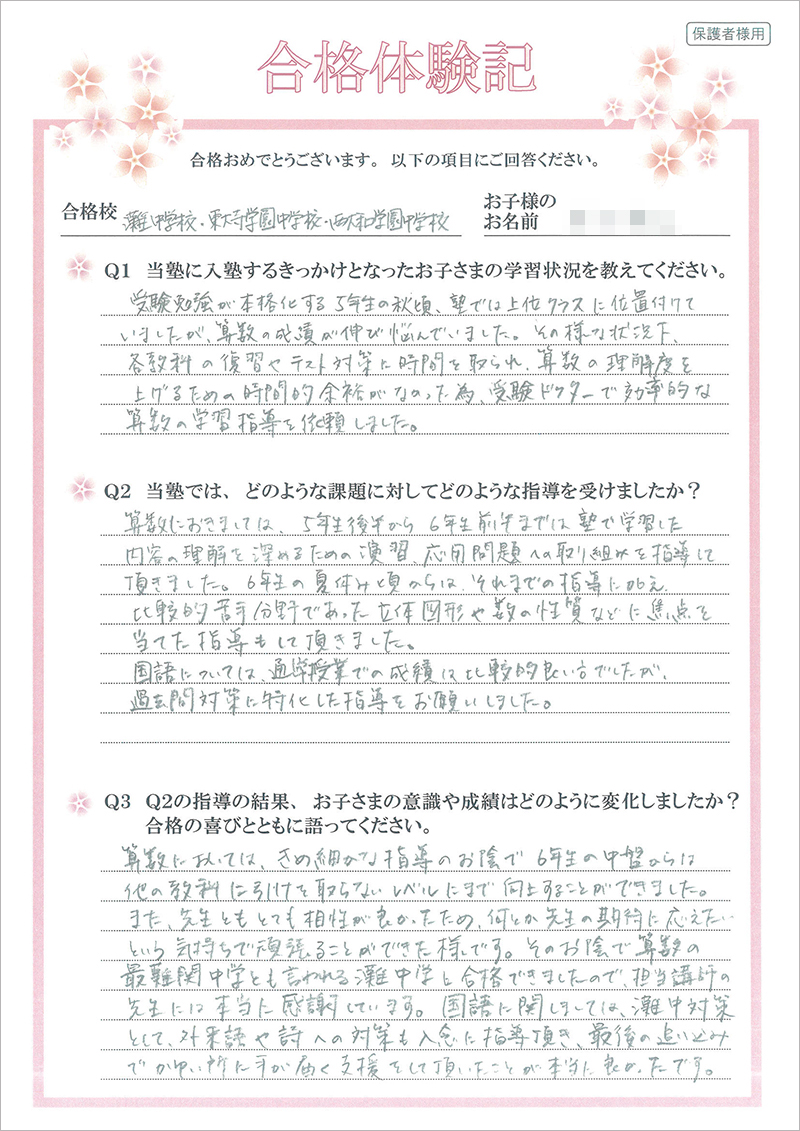 保護者様用
合格体験記
合格おめでとうございます。以下の項目にご回答ください。
合格校 灘中学校・東大寺学園中学校・西大和学園中学校
お子様の
お名前
Q1 当塾に入塾するきっかけとなったお子さまの学習状況を教えてください。
受験勉強が本格化する5年生の秋頃、塾では上位クラスに位置付けて
いましたが、算数の成績が伸び悩んでいました。その様な状況下、
各教科の復習やテスト対策に時間を取られ、算数の理解度を
上げるための時間的余裕がなかった為、受験ドクターで効率的な
算数の学習指導を依頼しました。
Q2 当塾では、どのような課題に対してどのような指導を受けましたか？
算数におきましては、5年生後半から6年生前半までは塾で学習した
内容の理解を深めるための演習、応用問題への取り組みを指導して
頂きました。6年生の夏休み頃からは、それまでの指導に加え、
比較的苦手分野であった立体図形や数の性質などに焦点を
当てた指導もして頂きました。
国語については、通常授業での成績は比較的良い方でしたが、
過去問対策に特化した指導をお願いしました。
Q3 Q2の指導の結果、お子さまの意識や成績はどのように変化しましたか？
合格の喜びとともに語ってください。
算数においては、きめ細かな指導のお陰で6年生の中盤からは
他の教科に引けを取らないレベルにまで向上することができました。
また、先生ともとても相性が良かったため、何とか先生の期待に応えたい
という気持ちで頑張ることができた様です。そのお陰で算数の
最難関中学とも言われる灘中学に合格できましたので、担当講師の
先生には本当に感謝しています。国語に関しましては、灘中対策
として、外来語や詩への対策も入念に指導頂き、最後の追い込み
でかゆい所に手が届く支援をして頂いたことが本当に良かったです。